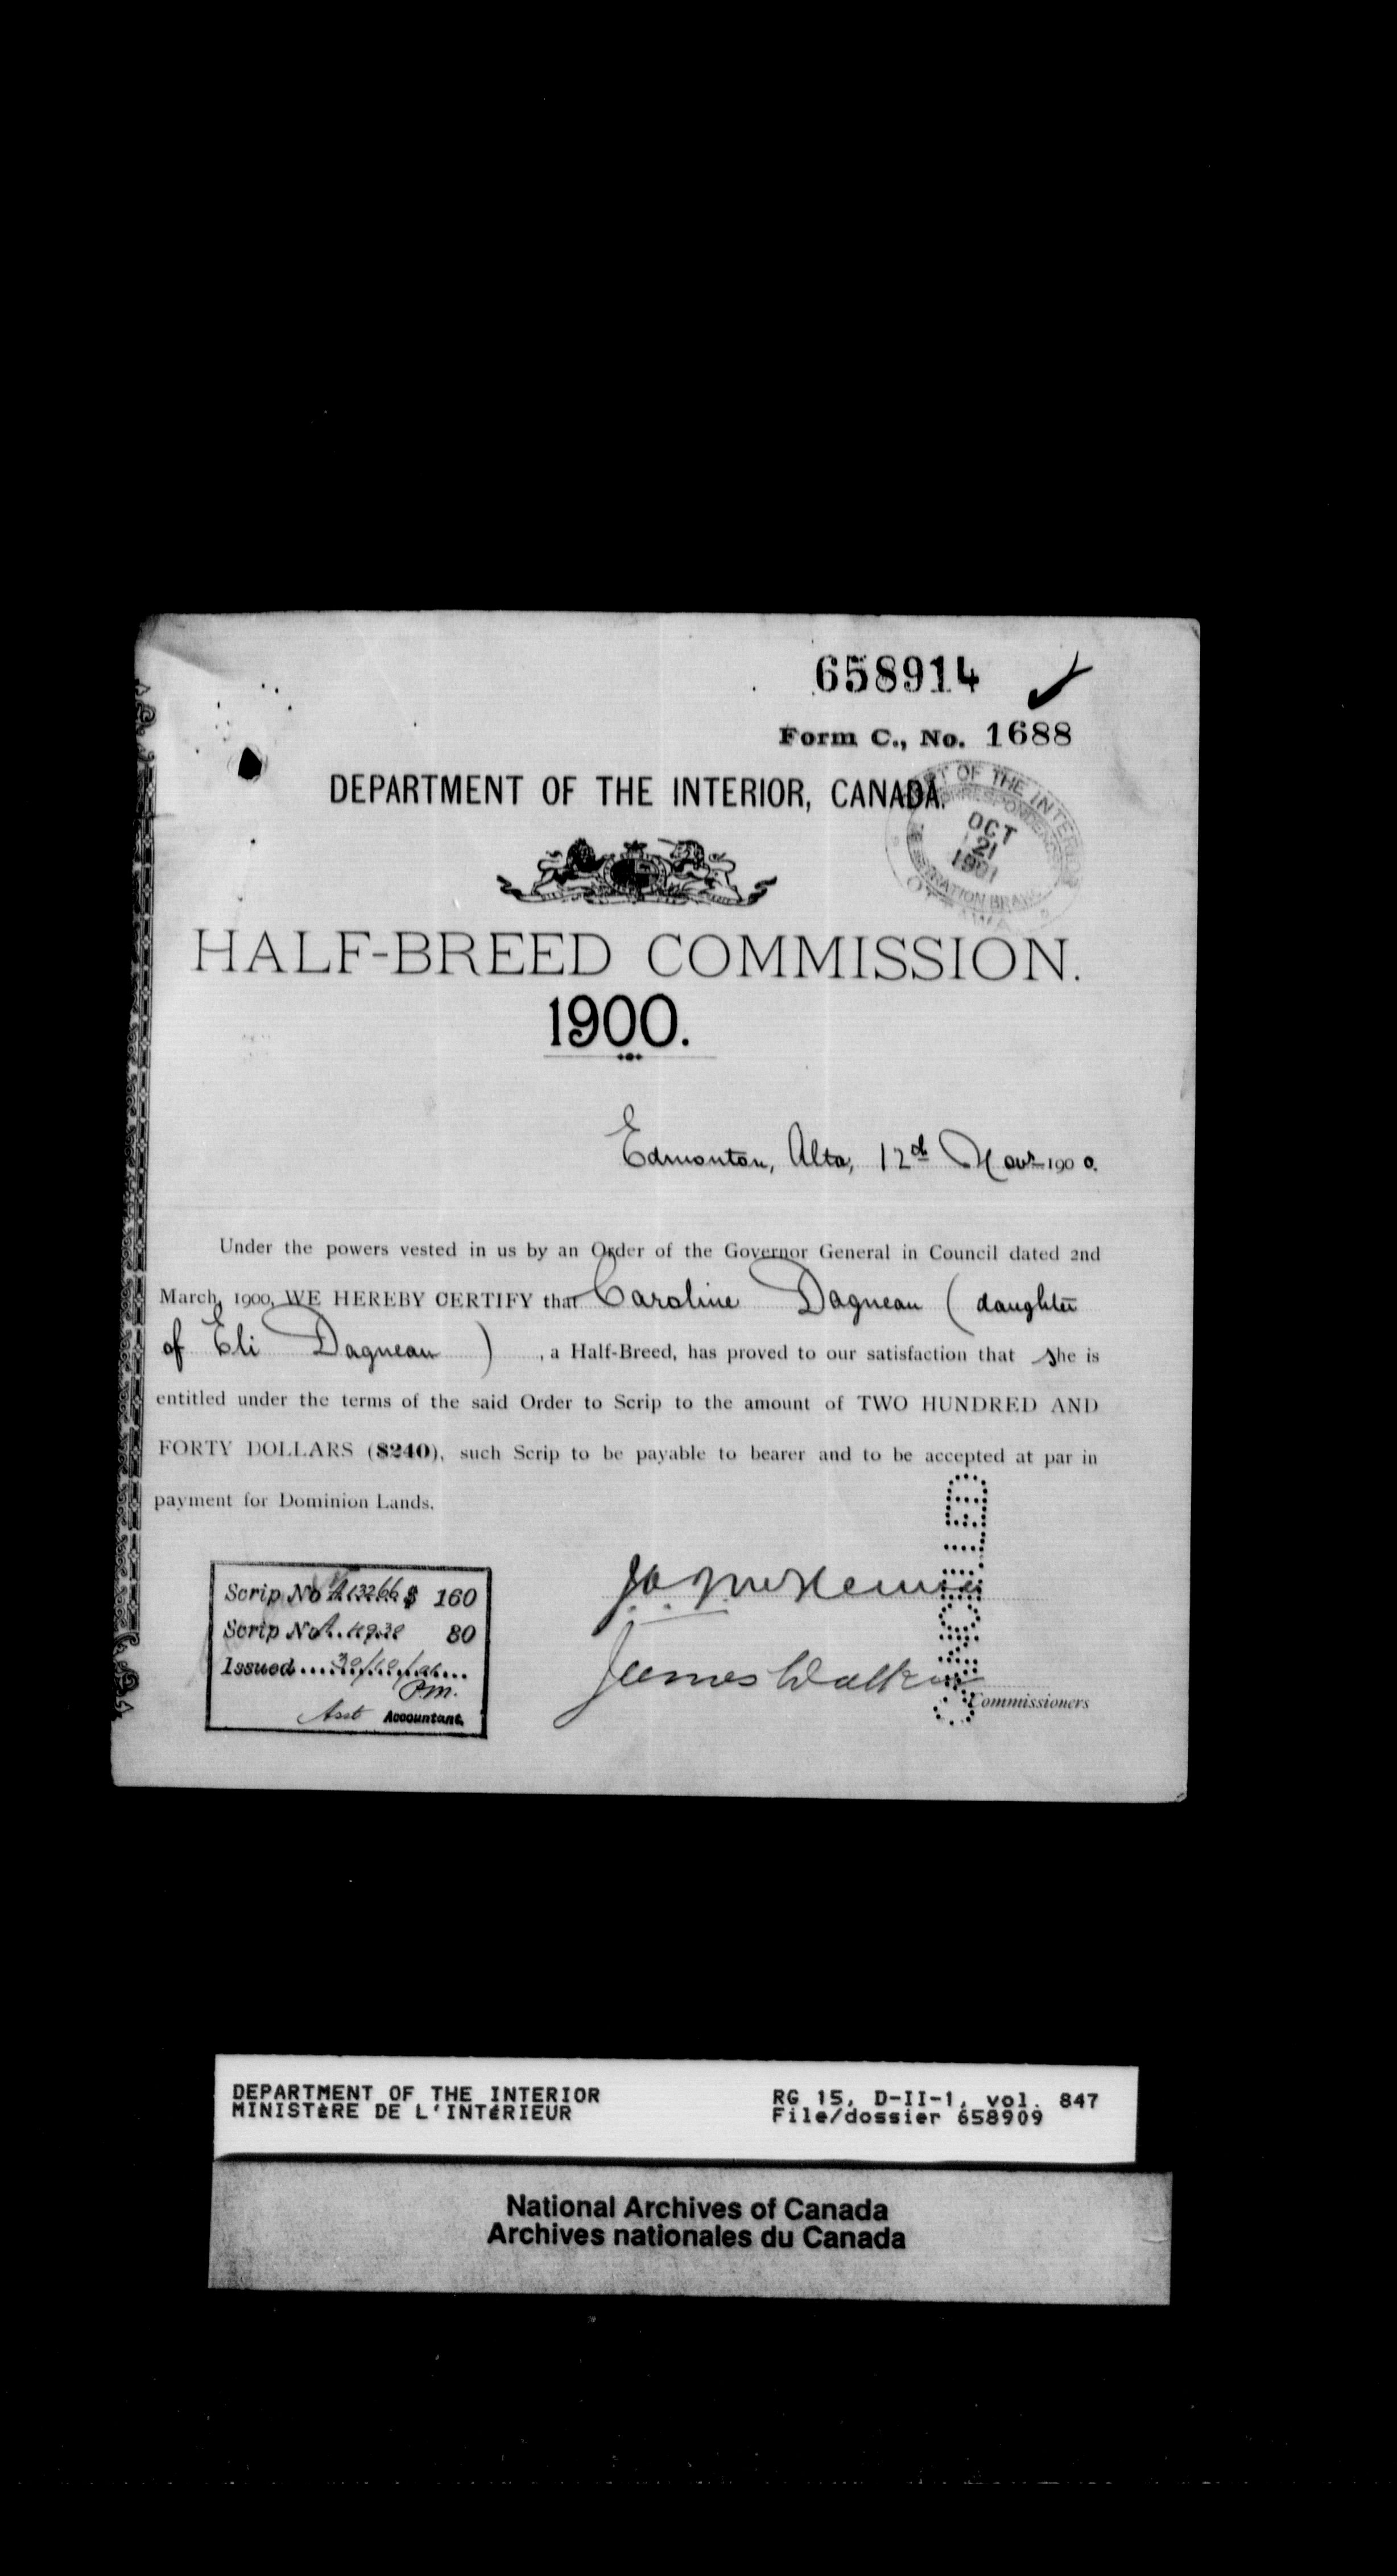 658914
Form C., No. 1688
DEPARTMENT OF THE INTERIOR, CANADA.
OCT
21
1901
HALF-BREED COMMISSION.
1900.
Edmonton, Alta, 12d Novr 1900.
Under the powers vested in us by an Order of the Governor General in Council dated 2nd
March, 1900, WE HEREBY CERTIFY that Caroline Dagneau (daughter
of Eli Dagneau ) , a Half-Breed, has proved to our satisfaction that she is
entitled under the terms of the said Order to Scrip to the amount of TWO HUNDRED AND
FORTY DOLLARS ($240), such Scrip to be payable to bearer and to be accepted at par in
payment for Dominion Lands.
CANCELLED
Scrip No A13266 $ 160
Scrip No A. 80
Issued 30/10/01
P.M.
Asst Accountant.
James Walker
Commissioners
DEPARTMENT OF THE INTERIOR
MINISTèRE DE L'INTéRIEUR
RG 15, D-II-1, vol. 847
File/dossier 658909
National Archives of Canada
Archives nationales du Canada